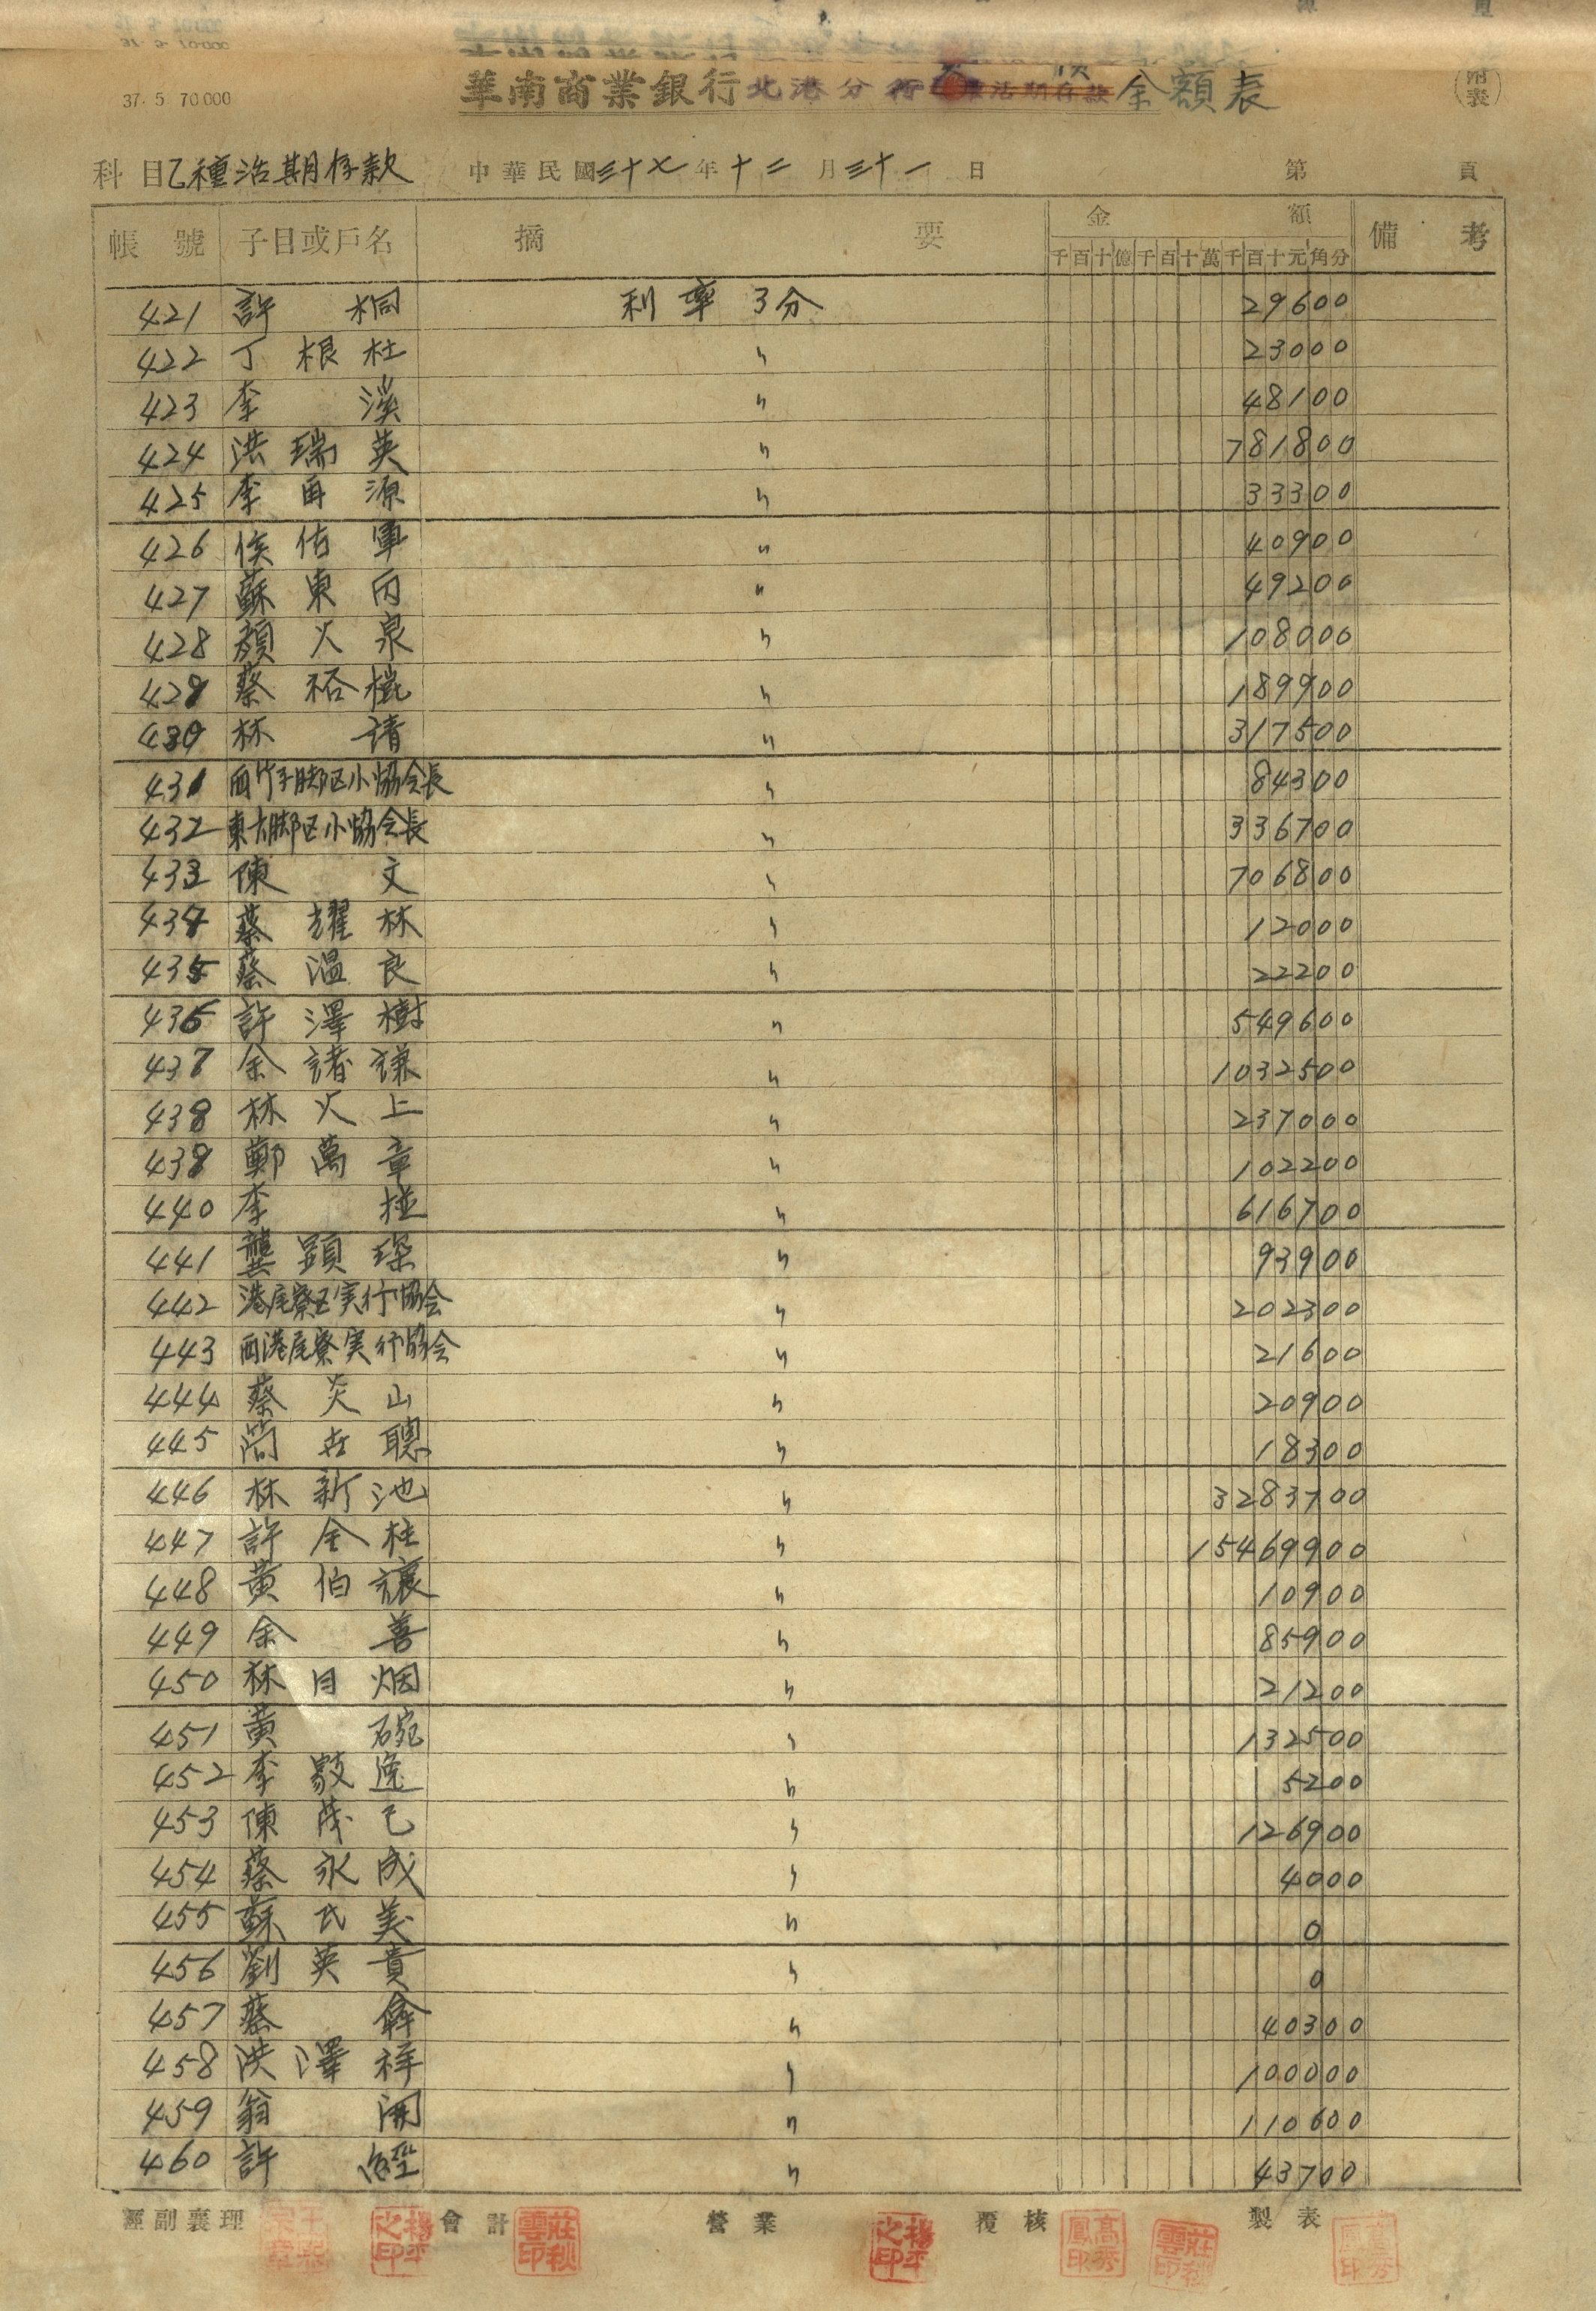 37. 5. 70000
華南商業銀行北港分行 余額表
(附表)
科目 乙種活期存款 中華民國三十七年十二月三十一日 第 頁
帳號 子目或戶名 摘要 金額 備考
千百十億千百十萬千百十元角分
421 許桐 利率3分 29600
422 丁根杜 〃 23000
423 李溪 〃 48100
424 洪瑞英 〃 781800
425 李再源 〃 33300
426 侯佑軍 〃 40900
427 蘇東丙 〃 49200
428 顏火泉 〃 108000
429 蔡裕 〃 189900
430 林請 〃 317500
431 西竹子脚区小協会長 〃 84300
432 東大脚区小協会長 〃 336700
433 陳文 〃 706800
434 蔡耀林 〃 12000
435 蔡溫良 〃 22200
436 許澤樹 〃 549600
437 余諸謙 〃 1032500
438 林火上 〃 237000
439 鄭萬章 〃 102200
440 李 〃 616700
441 龔顕琛 〃 93900
442 港尾寮区実行協会 〃 202300
443 西港尾寮実行協会 〃 21600
444 蔡炎山 〃 20900
445 簡在聰 〃 18300
446 林新池 〃 3283700
447 許金柱 〃 15469900
448 黃伯讓 〃 10900
449 余善 〃 85900
450 林目烟 〃 21200
451 黃碗 〃 132500
452 李 〃 5200
453 陳茂己 〃 126900
454 蔡永成 〃 4000
455 蘇氏美 〃 0
456 劉英貴 〃 0
457 蔡 〃 40300
458 洪澤祥 〃 100000
459 翁開 〃 110600
460 許經 〃 43700
經副襄理 會計 營業 覆核 製表
楊平之印 莊秋雲印 楊平之印 高秀鳳印 莊秋雲印 高秀鳳印